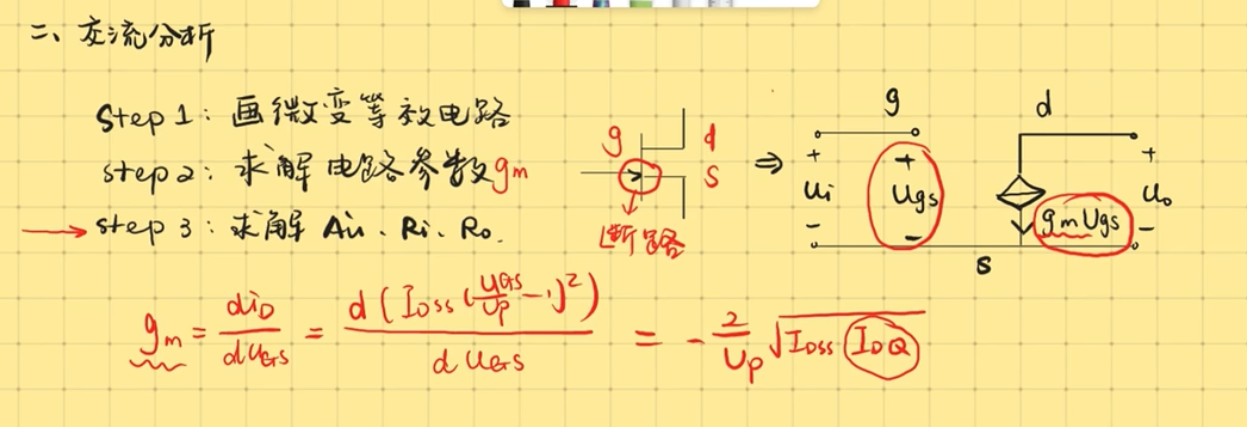 二、交流分析
Step 1: 画微变等效电路
step 2: 求解电路参数 gm
step 3: 求解 Au、Ri、Ro.
g
d
s
断路
⇒
g
d
+
Ui
-
+
Ugs
-
gmUgs
+
Uo
-
s
gm = diD/duGS = d(IDSS(uGS/Up - 1)²)/duGS = -2/Up √(IDSS IDQ)